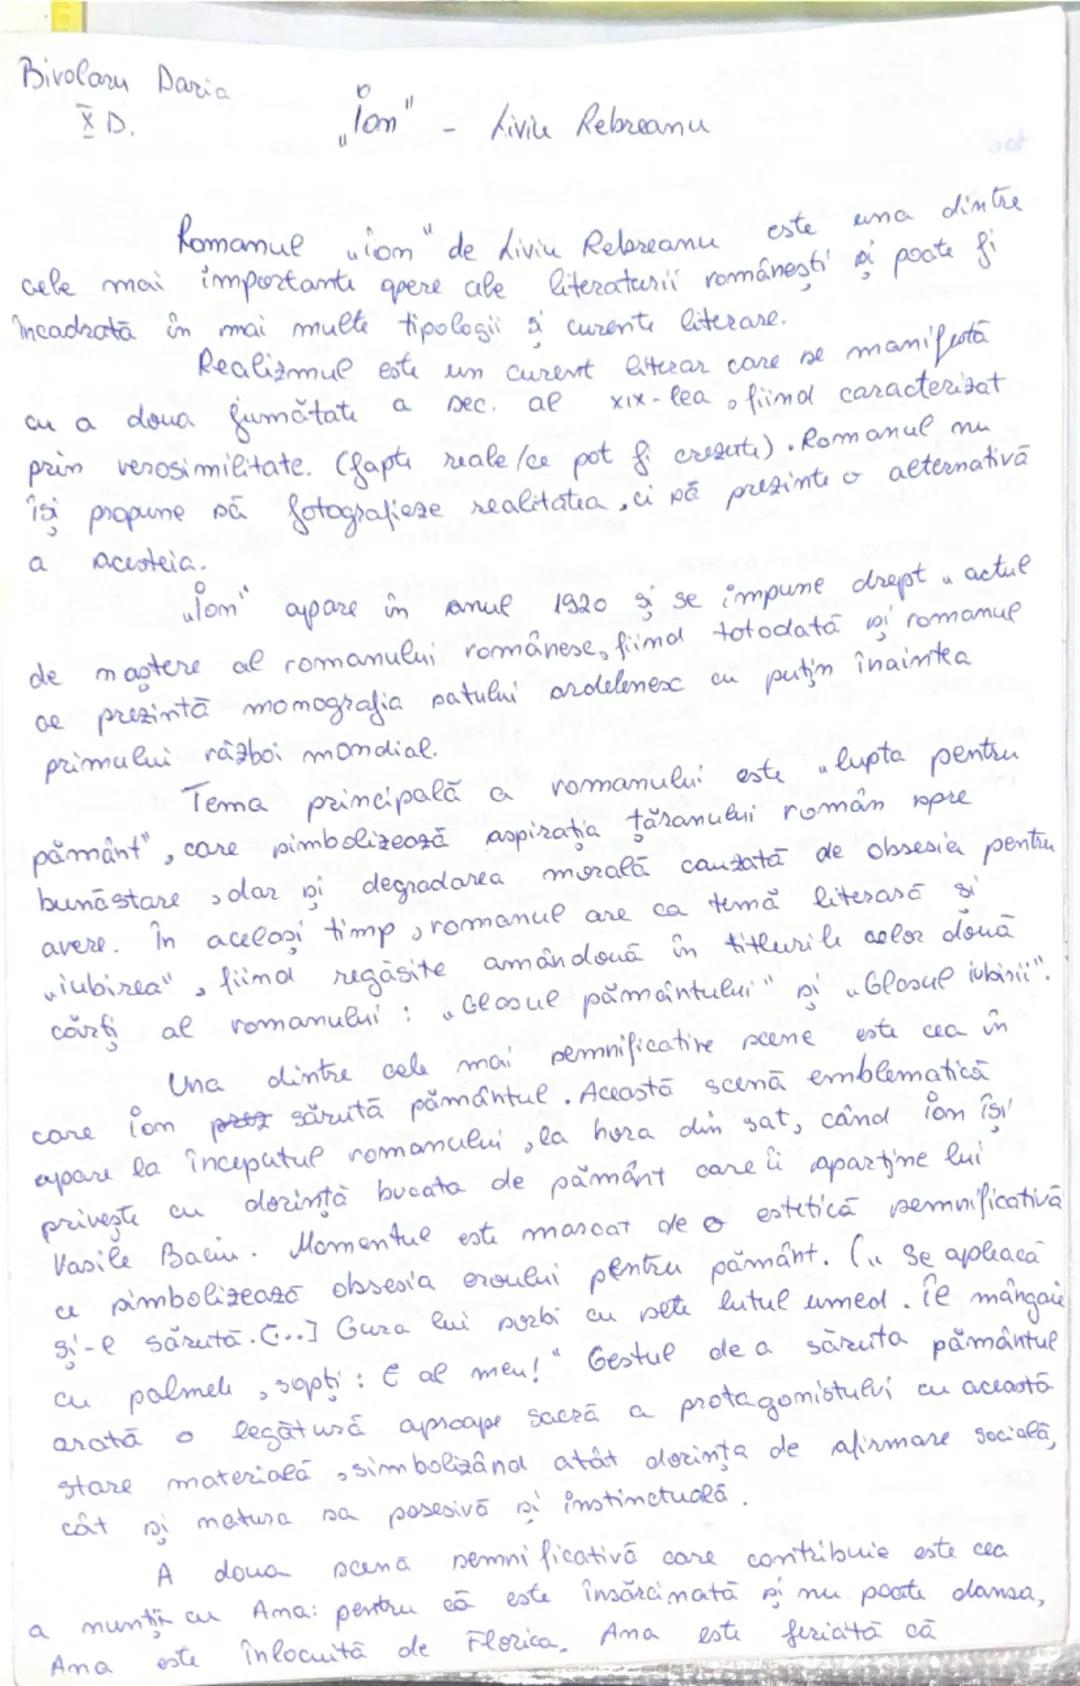 Bivolaru Daria
X D.
„Ion" - Liviu Rebreanu
Romanul „ion" de Liviu Rebreanu este una dintre
cele mai importante opere ale literaturii românești și poate fi
încadrată în mai multe tipologii și curente literare.
Realizmul este un curent literar care se manifestă
cu a doua jumătate a sec. al XIX-lea, fiind caracterizat
prin verosimilitate. (fapte reale/ce pot fi crezute). Romanul nu
își propune să fotografieze realitatea, ci să prezinte o alternativă
a acesteia.
„Ion" apare în anul 1920 și se impune drept „actul
de naștere al romanului românesc, fiind totodată și romanul
ce prezintă monografia satului ardelenesc cu puțin înaintea
primului război mondial.
Tema principală a romanului este „lupta pentru
pământ", care simbolizează aspirația țăranului român spre
bunăstare, dar și degradarea morală cauzată de obsesia pentru
avere. În același timp, romanul are ca temă literară și
„iubirea", fiind regăsite amândouă în titlurile celor două
cărți al romanului: „Glasul pământului" și „Glasul iubirii".
Una dintre cele mai semnificative scene este cea în
care ion sărută pământul. Această scenă emblematică
apare la începutul romanului, la hora din sat, când ion își
privește cu dorință bucata de pământ care îi aparține lui
Vasile Baciu. Momentul este marcat de o estetică semnificativă
ce simbolizează obsesia eroului pentru pământ. („Se apleacă
și-l sărută. [...] Gura lui sorbi cu sete lutul umed. Îl mângaie
cu palmele, șopti: E al meu!" Gestul de a săruta pământul
arată o legătură aproape sacră a protagonistului cu această
stare materială, simbolizând atât dorința de afirmare socială,
cât și natura sa posesivă și instinctuală.
A doua scenă semnificativă care contribuie este cea
a nunții cu Ana: pentru că este însărcinată și nu poate dansa,
Ana este înlocuită de Florica. Ana este feriaită că